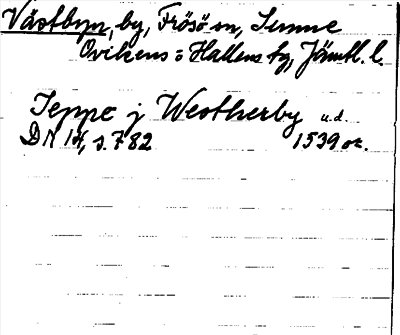 Västbyn, by, Frösö sn, Sunne
Ovikens o Hallens tg, Jämtl. l.
Jeppe j Westherby u.d.
DN 14, s. 782 1539 or.